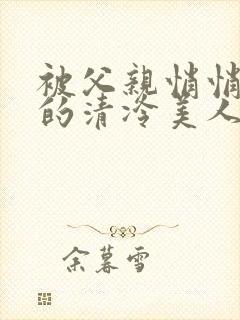 被父亲悄悄
的清冷美人
余暮雪